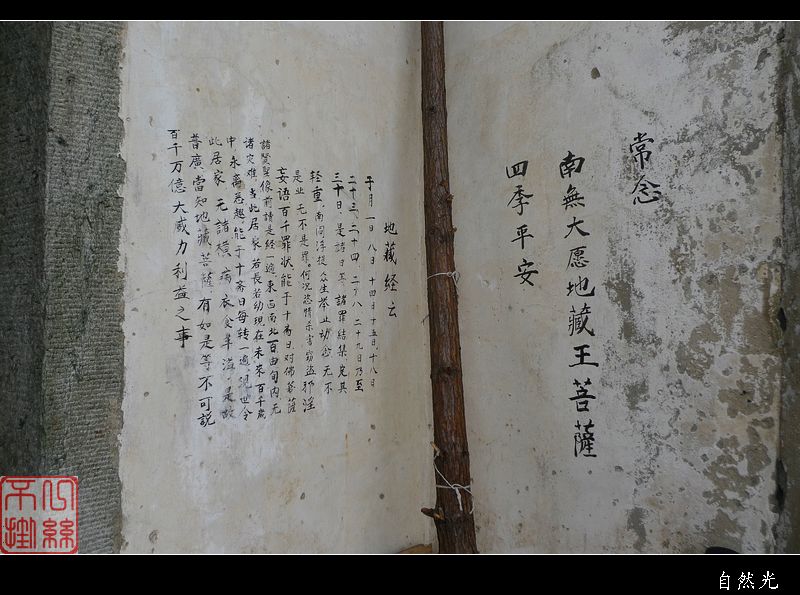 常念
南無大愿地藏王菩薩
四季平安
地藏经云
于月一日 八日 十四日 十五日 十八日
二十三 二十四 二十八 二十九日乃至
三十日,是諸日等,諸罪结集定其
轻重。南閻浮提众生举止动念无不
是业 无不是罪。何况恣情杀害窃盗邪淫
妄语百千罪状能于十斋日对佛菩薩
諸賢聖像前讀是经一遍,东西南北百由旬内无
诸灾难,当此居家若長若幼现在未来百千歲
中永离恶趣能于十斋日每转一遍,现世令
此居家 无諸横病衣食丰溢,是故
普廣當知地藏菩薩有如是等不可説
百千万億大威力利益之事
自然光